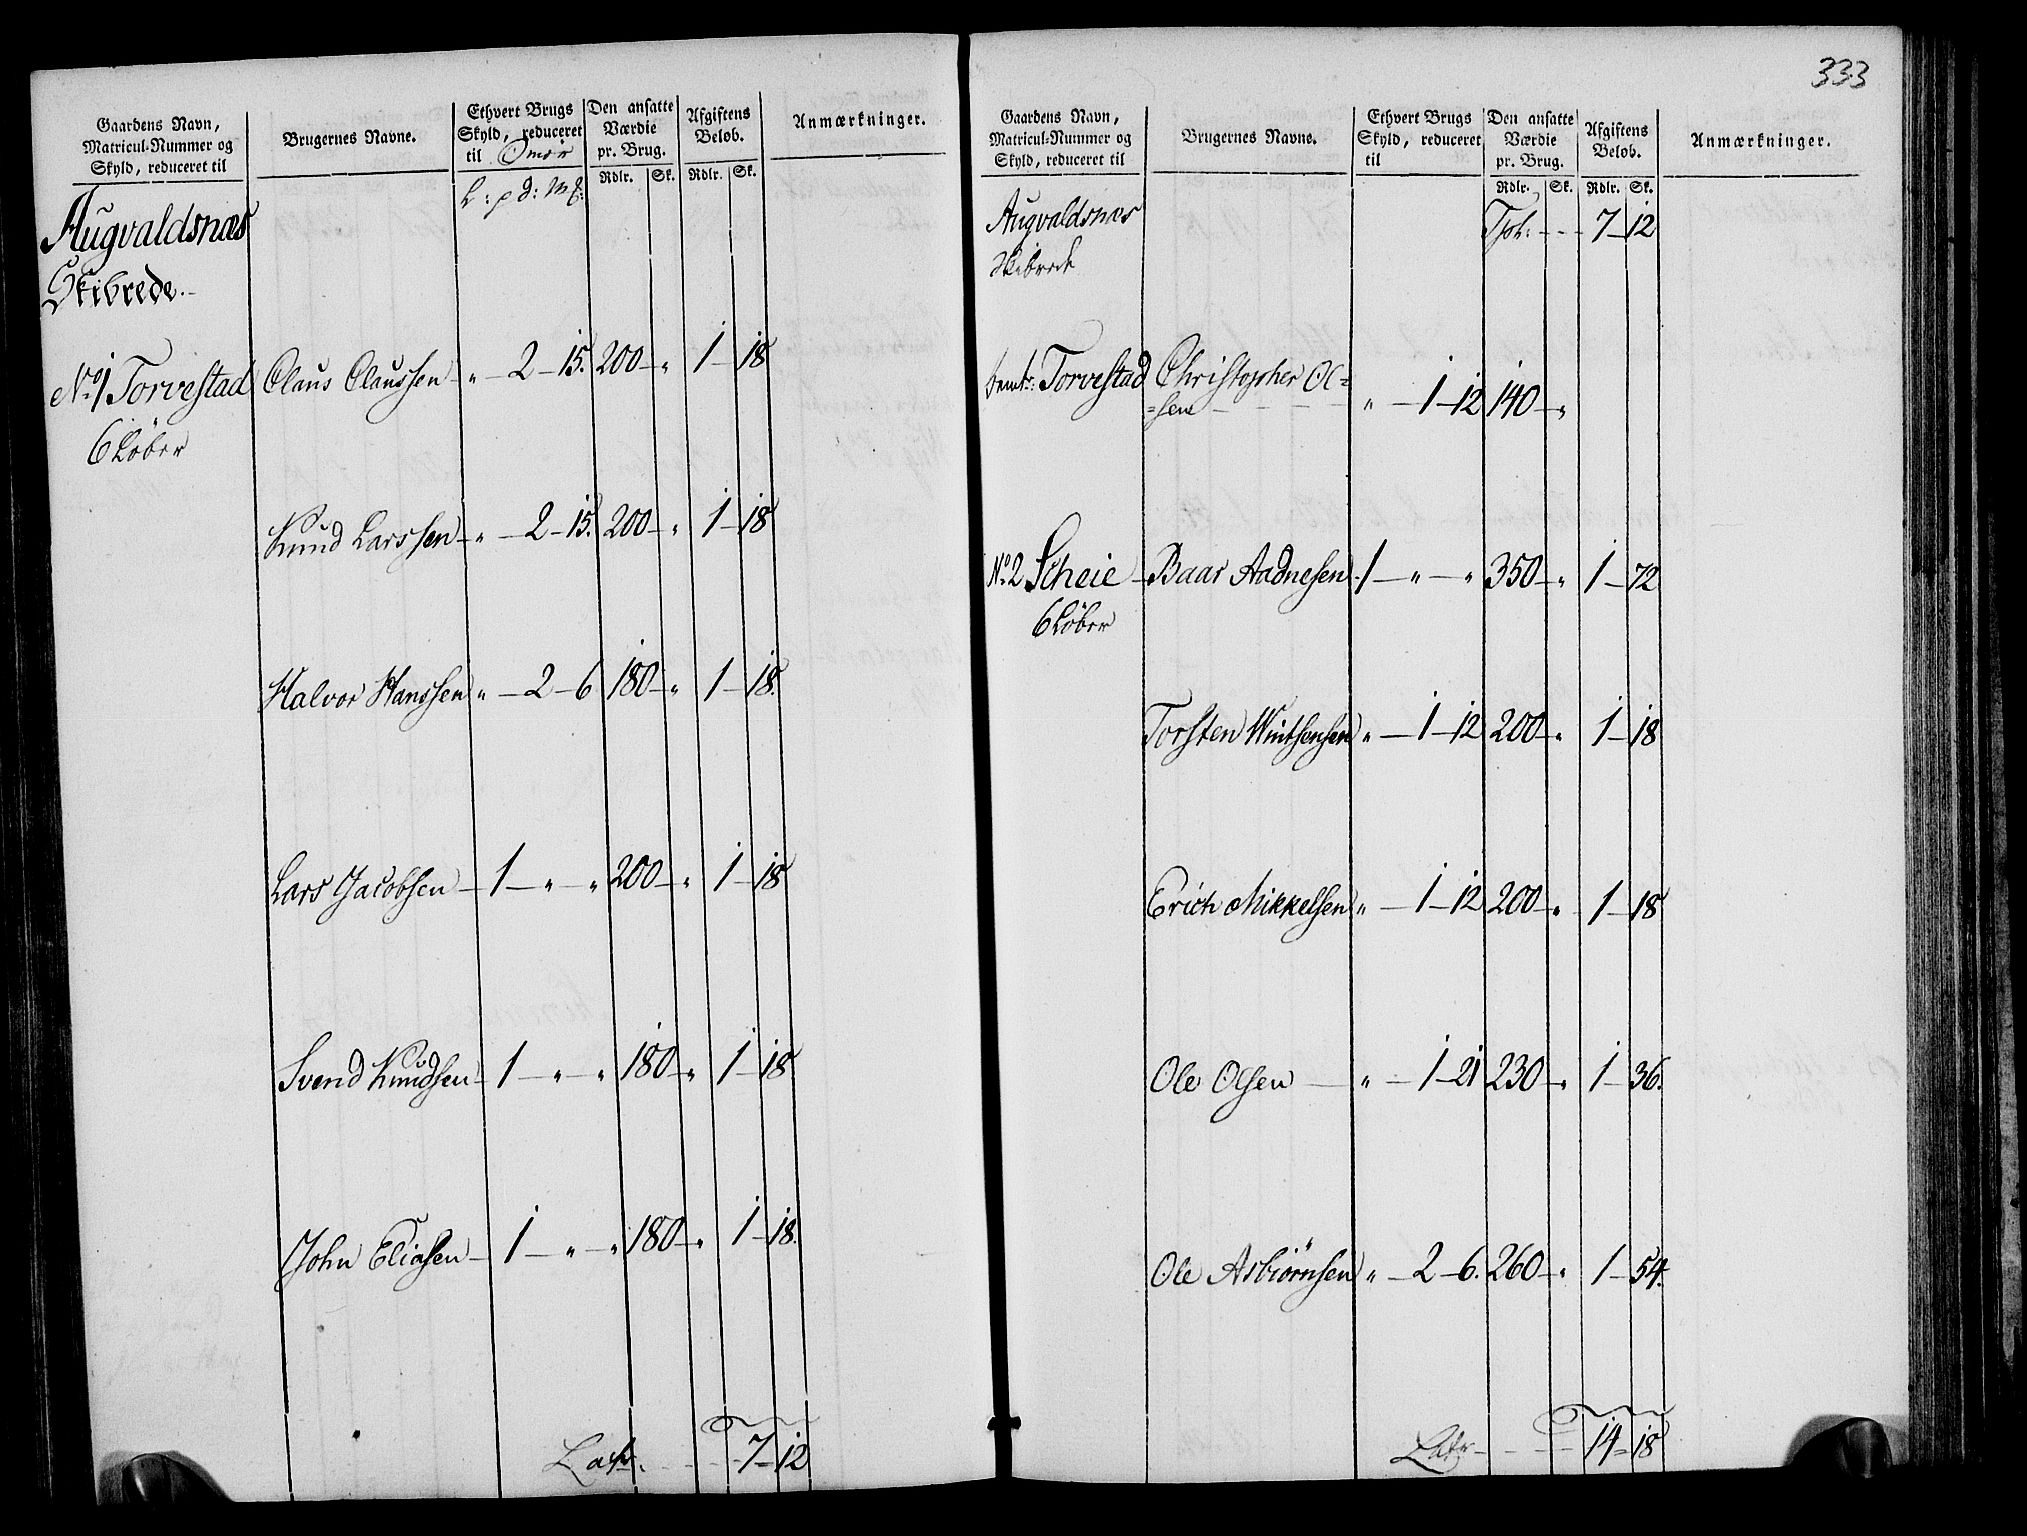 Gaardens Navn,
Matricul-Nummer og
Skyld, reduceret til
Brugernes Navne.
Ethvert Brugs
Skyld, reduceret
til Smör
Den ansatte
Værdie
pr. Brug.
Afgiftens
Beløb.
Anmærkninger.
L: pd: m&:
Rdlr. Sk. Rdlr. Sk.
Augvaldsnæs
Skibrede.
No 1 Torvestad Claus Claussen " 2 15. 200 " 1 18
6 Löber
Knud Larssen " 2 15. 200 " 1 18
Halvor Hanssen " 2 6 180 " 1 18.
Lars Jacobsen 1 " " 200 " 1 18
Svend Knudsen 1 " " 180 " 1 18
John Eliasen 1 " " 180 " 1 18.
Lat. 7 12
333
Gaardens Navn,
Matricul-Nummer og
Skyld, reduceret til
Brugernes Navne.
Ethvert Brugs
Skyld, reduceret
til
Den ansatte
Værdie
pr. Brug.
Afgiftens
Beløb.
Anmærkninger.
Rdlr. Sk. Rdlr. Sk.
Augvaldsnæs 7 12
Skibrede
Torvestad Christopher Ol=
=sen " 1 12 140 "
No 2 Scheie Baar Aadnesen 1 " " 350 " 1 72
6 Löber
Torsten Wintsensen " 1 12 200 " 1 18
Erich Mikkelsen " 1 12 200 " 1 18
Ole Olsen " 1 21 230 " 1 36.
Ole Asbiörnsen " 2 6. 260 " 1 54.
Latr 14 18